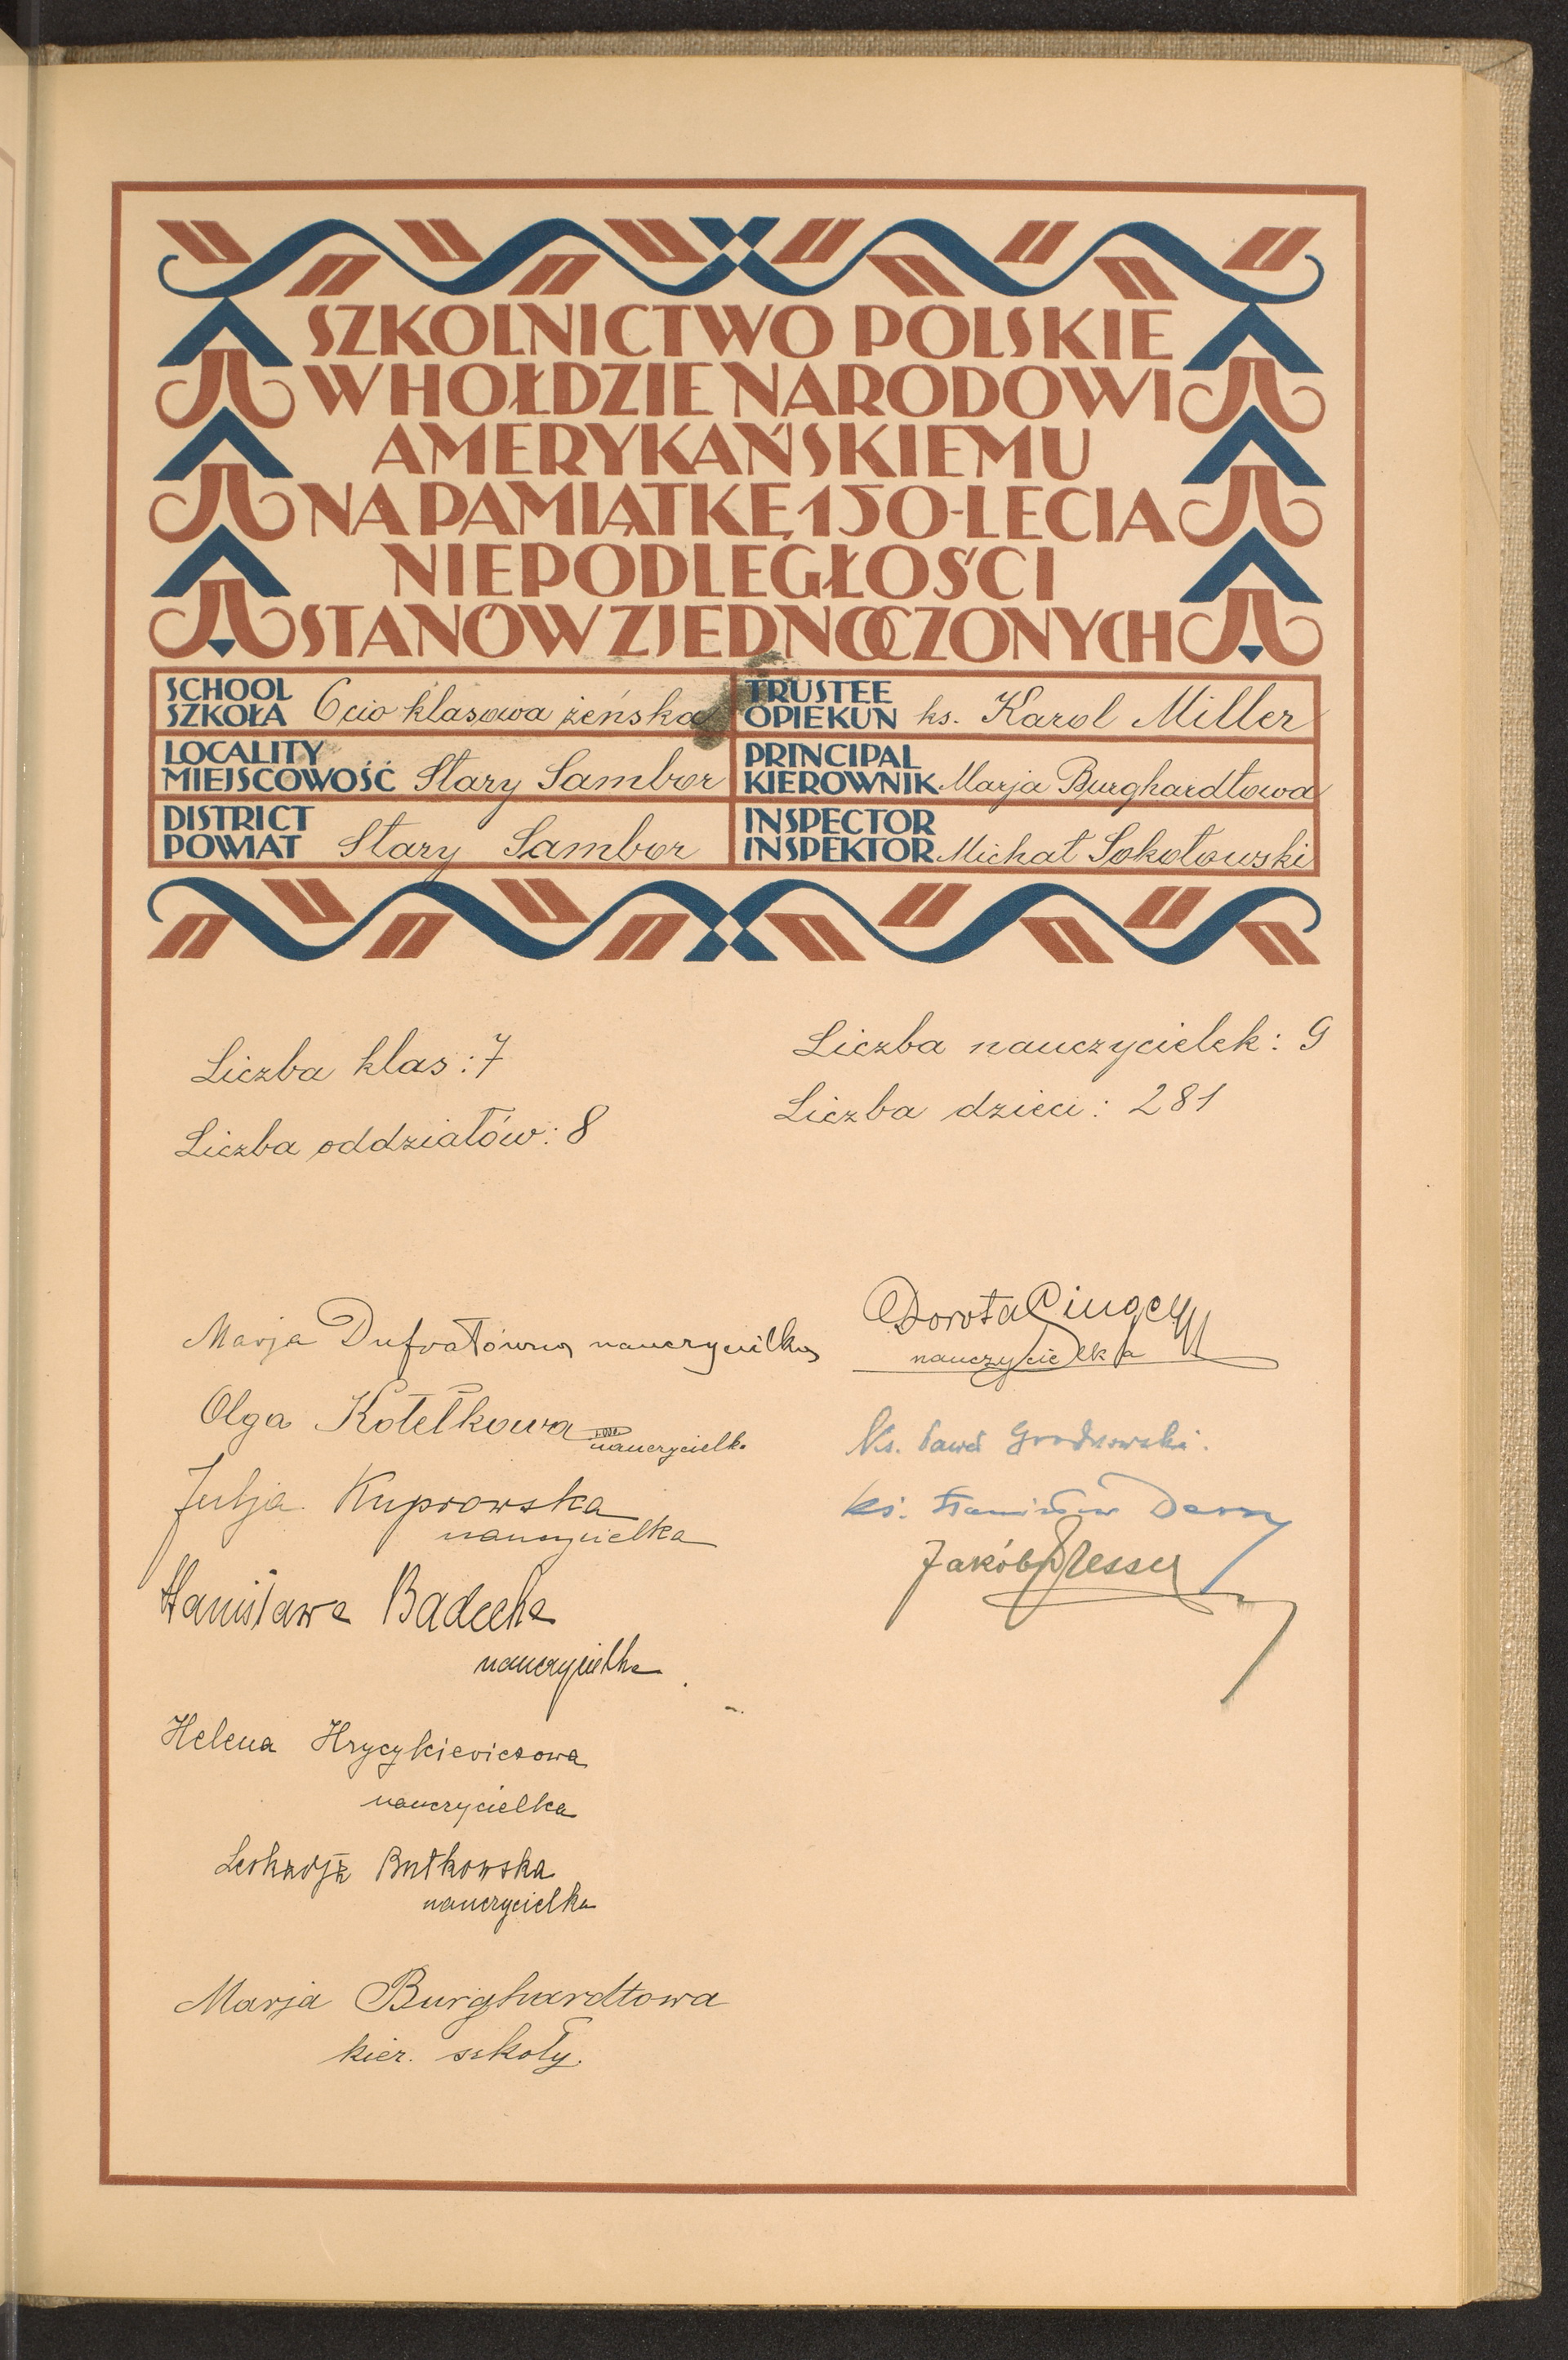 SZKOLNICTWO POLSKIE
W HOŁDZIE NARODOWI
AMERYKAŃSKIEMU
NA PAMIĄTKĘ 150-LECIA
NIEPODLEGŁOŚCI
STANÓW ZJEDNOCZONYCH
SCHOOL
SZKOŁA 6cio klasowa żeńska
TRUSTEE
OPIEKUN ks. Karol Miller
LOCALITY
MIEJSCOWOŚĆ Stary Sambor
PRINCIPAL
KIEROWNIK Marja Burghardtowa
DISTRICT
POWIAT Stary Sambor
INSPECTOR
INSPEKTOR Michał Sokołowski
Liczba klas: 7
Liczba oddziałów: 8
Liczba nauczycielek: 9
Liczba dzieci: 281
Marja Dufratówna nauczycielka
Olga Kotełkowa
nauczycielka
Julja Kuprowska
nauczycielka
Stanisława Badecka
nauczycielka
Helena Hrycykiewiczowa
nauczycielka
Leokadja Butkowska
nauczycielka
Marja Burghardtowa
kier. szkoły.
Dorota Singer
nauczycielka
Ks. Paweł
ks. Stanisław
Jakób